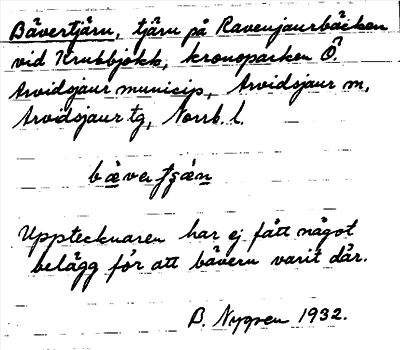 Bävertjärn, tjärn på Ravenjaurbäcken
vid Krubbjokk, kronoparken Ö.
Arvidsjaur municip, Arvidsjaur sn,
Arvidsjaur tg, Norrb. l.
Upptecknaren har ej fått något
belägg för att bävern varit där.
B. Nygren 1932.